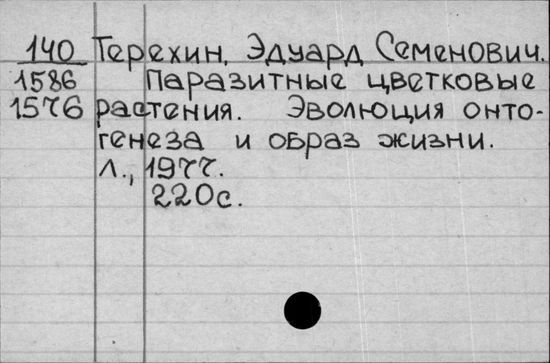 140 Терехин, Эдуард Семенович.
1586 Паразитные цветковые
1576 растения. Эволюция онто-
генеза и образ жизни.
Л., 1977.
220с.